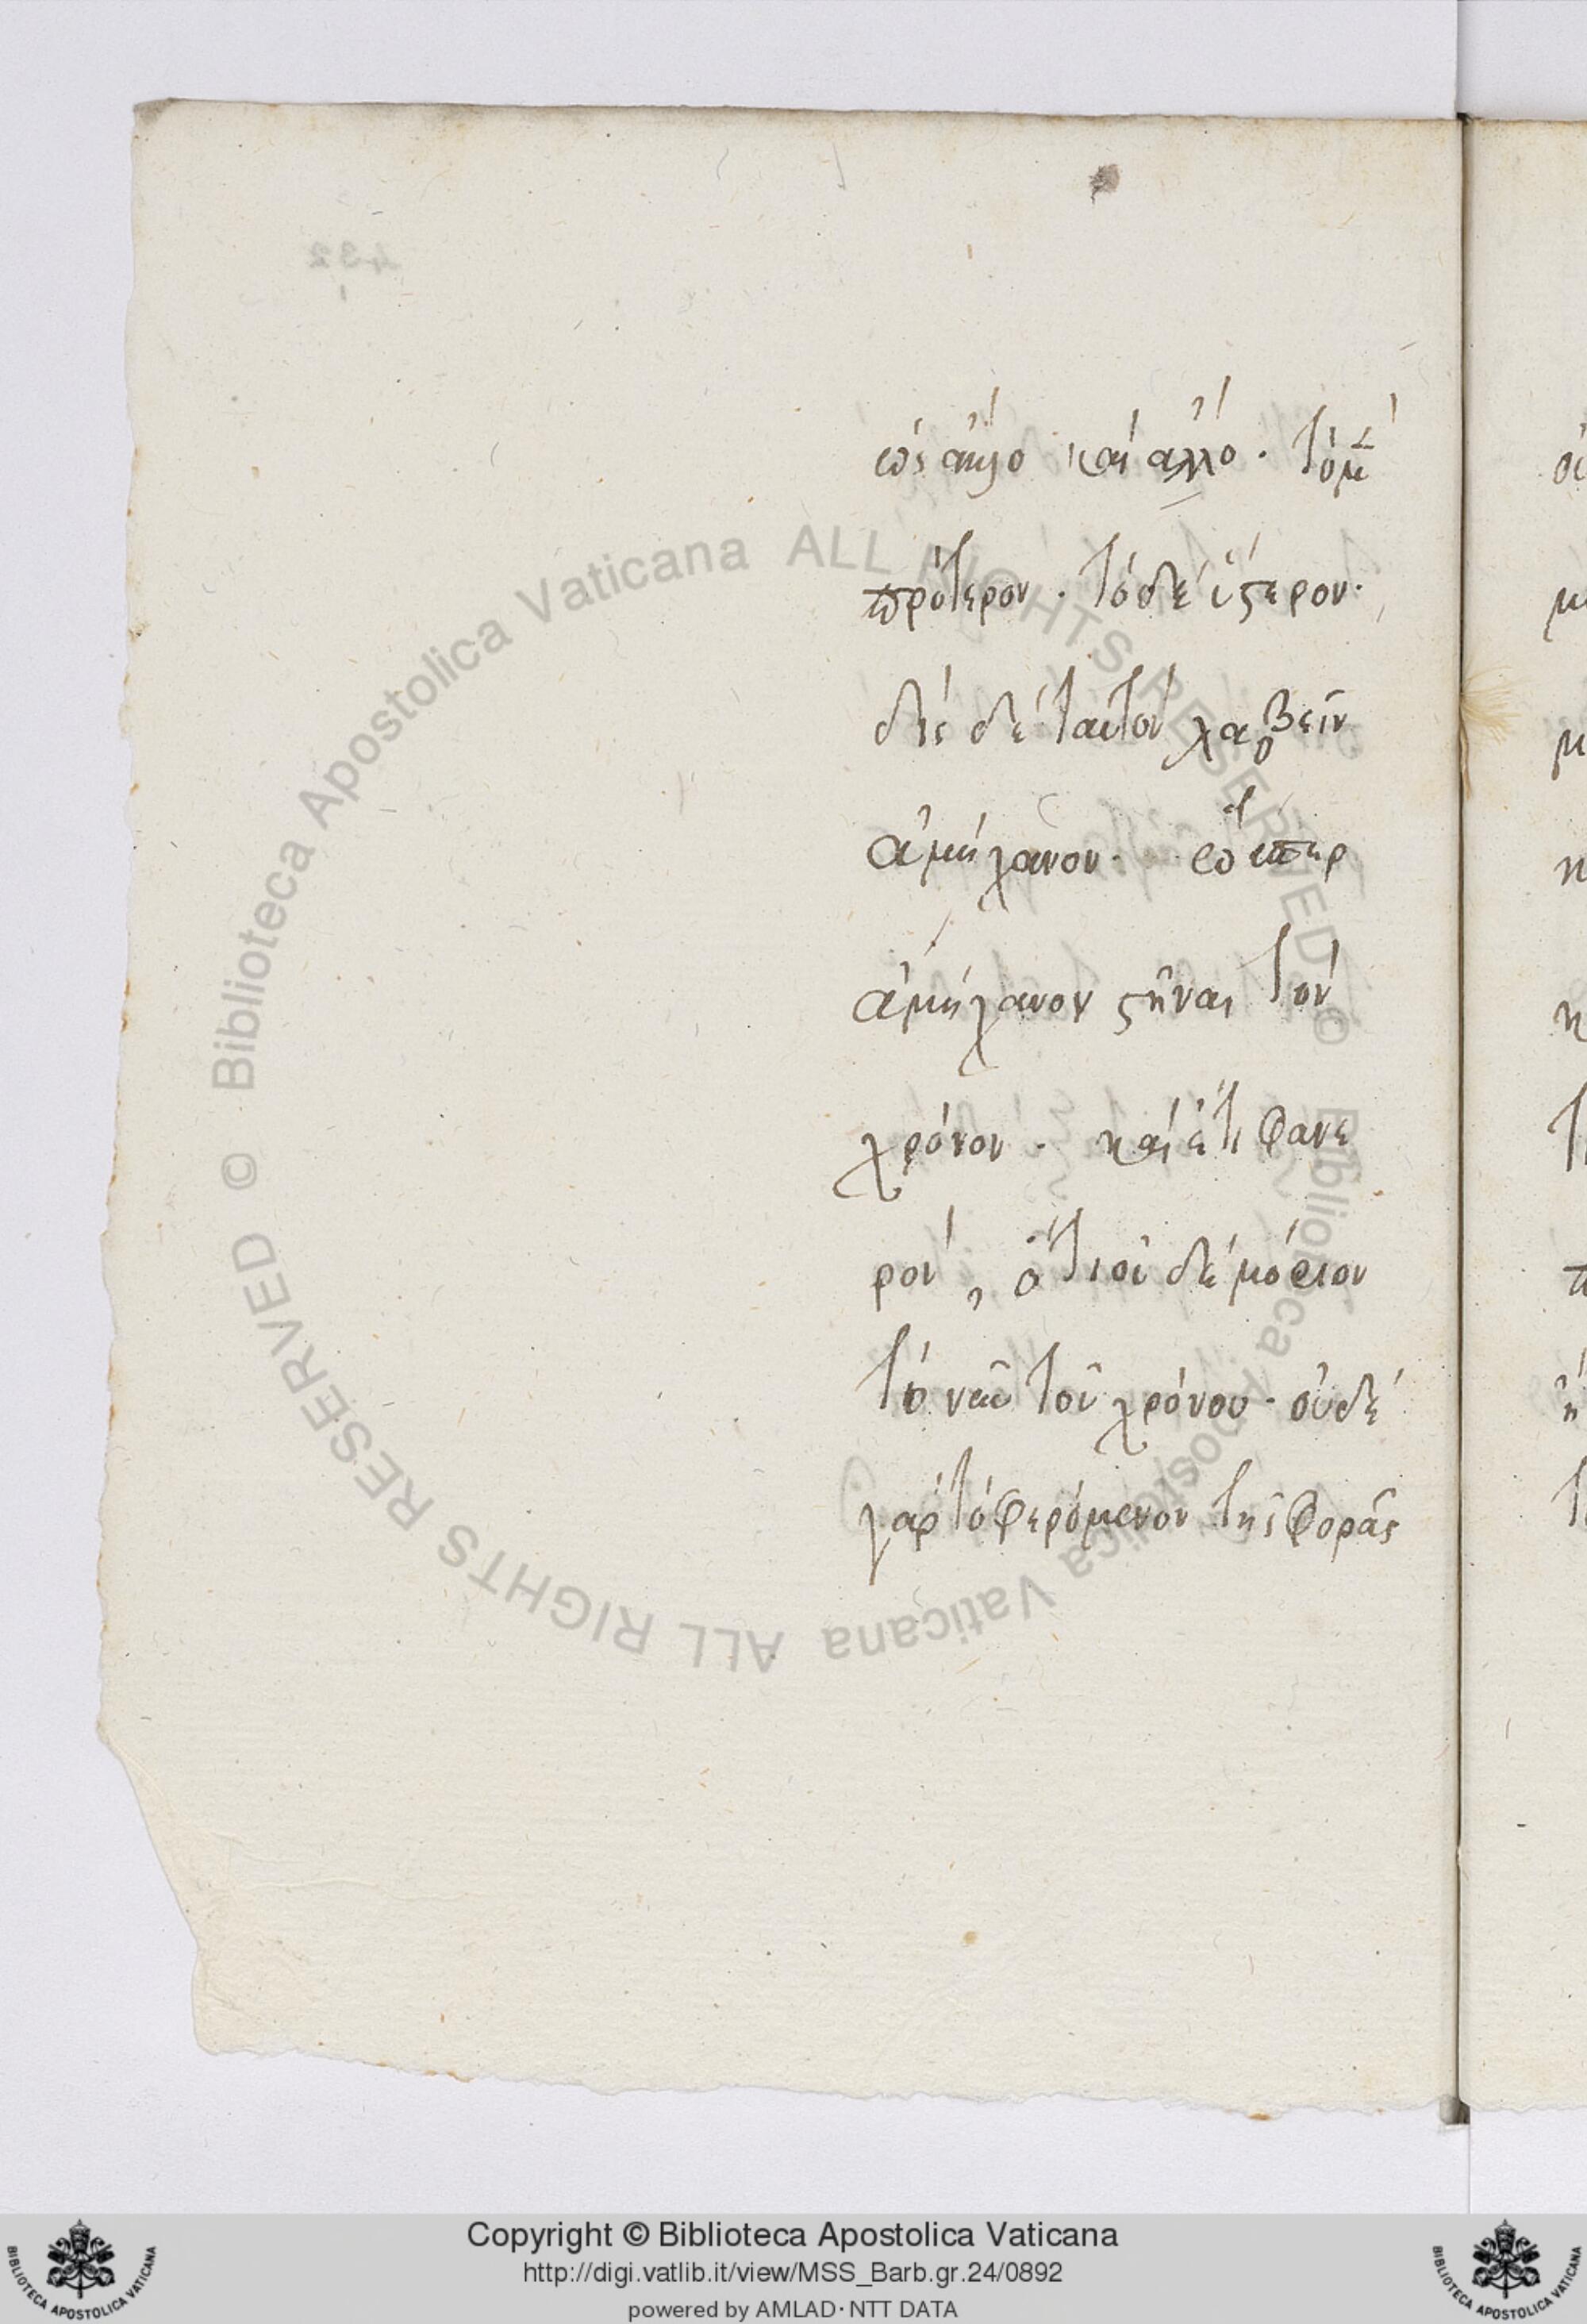 ὡς ἄλλο καὶ ἄλλο· τὸ μὲν
πρότερον· τὸ δὲ ὕστερον·
δὶς δὲ ταυτὸν λαβεῖν
ἀμήχανον· ὥσπερ
ἀμήχανον στῆναι τὸν
χρόνον· καὶ ἔτι φανε
ρὸν, ὅτι οὐδὲ μόριον
τὸ νῦν τοῦ χρόνου· οὐδὲ
γὰρ τὸ φερόμενον τῆς φορᾶς
432
© Biblioteca Apostolica Vaticana ALL RIGHTS RESERVED © Biblioteca Apostolica Vaticana ALL RIGHTS RESERVED
Copyright © Biblioteca Apostolica Vaticana
http://digi.vatlib.it/view/MSS_Barb.gr.24/0892
powered by AMLAD·NTT DATA
BIBLIOTECA APOSTOLICA VATICANA
BIBLIOTECA APOSTOLICA VATICANA